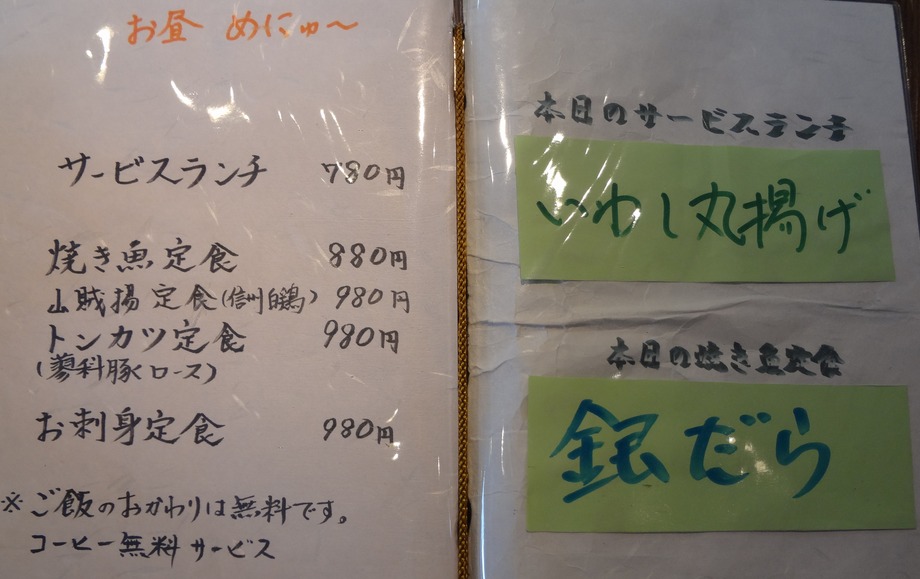 お昼 めにゅ〜
サービスランチ 780円
焼き魚定食 880円
山賊揚定食(信州白鶏) 980円
トンカツ定食 980円
(蓼科豚ロース)
お刺身定食 980円
※ご飯のおかわりは無料です。
コーヒー無料サービス
本日のサービスランチ
いわし丸揚げ
本日の焼き魚定食
銀だら